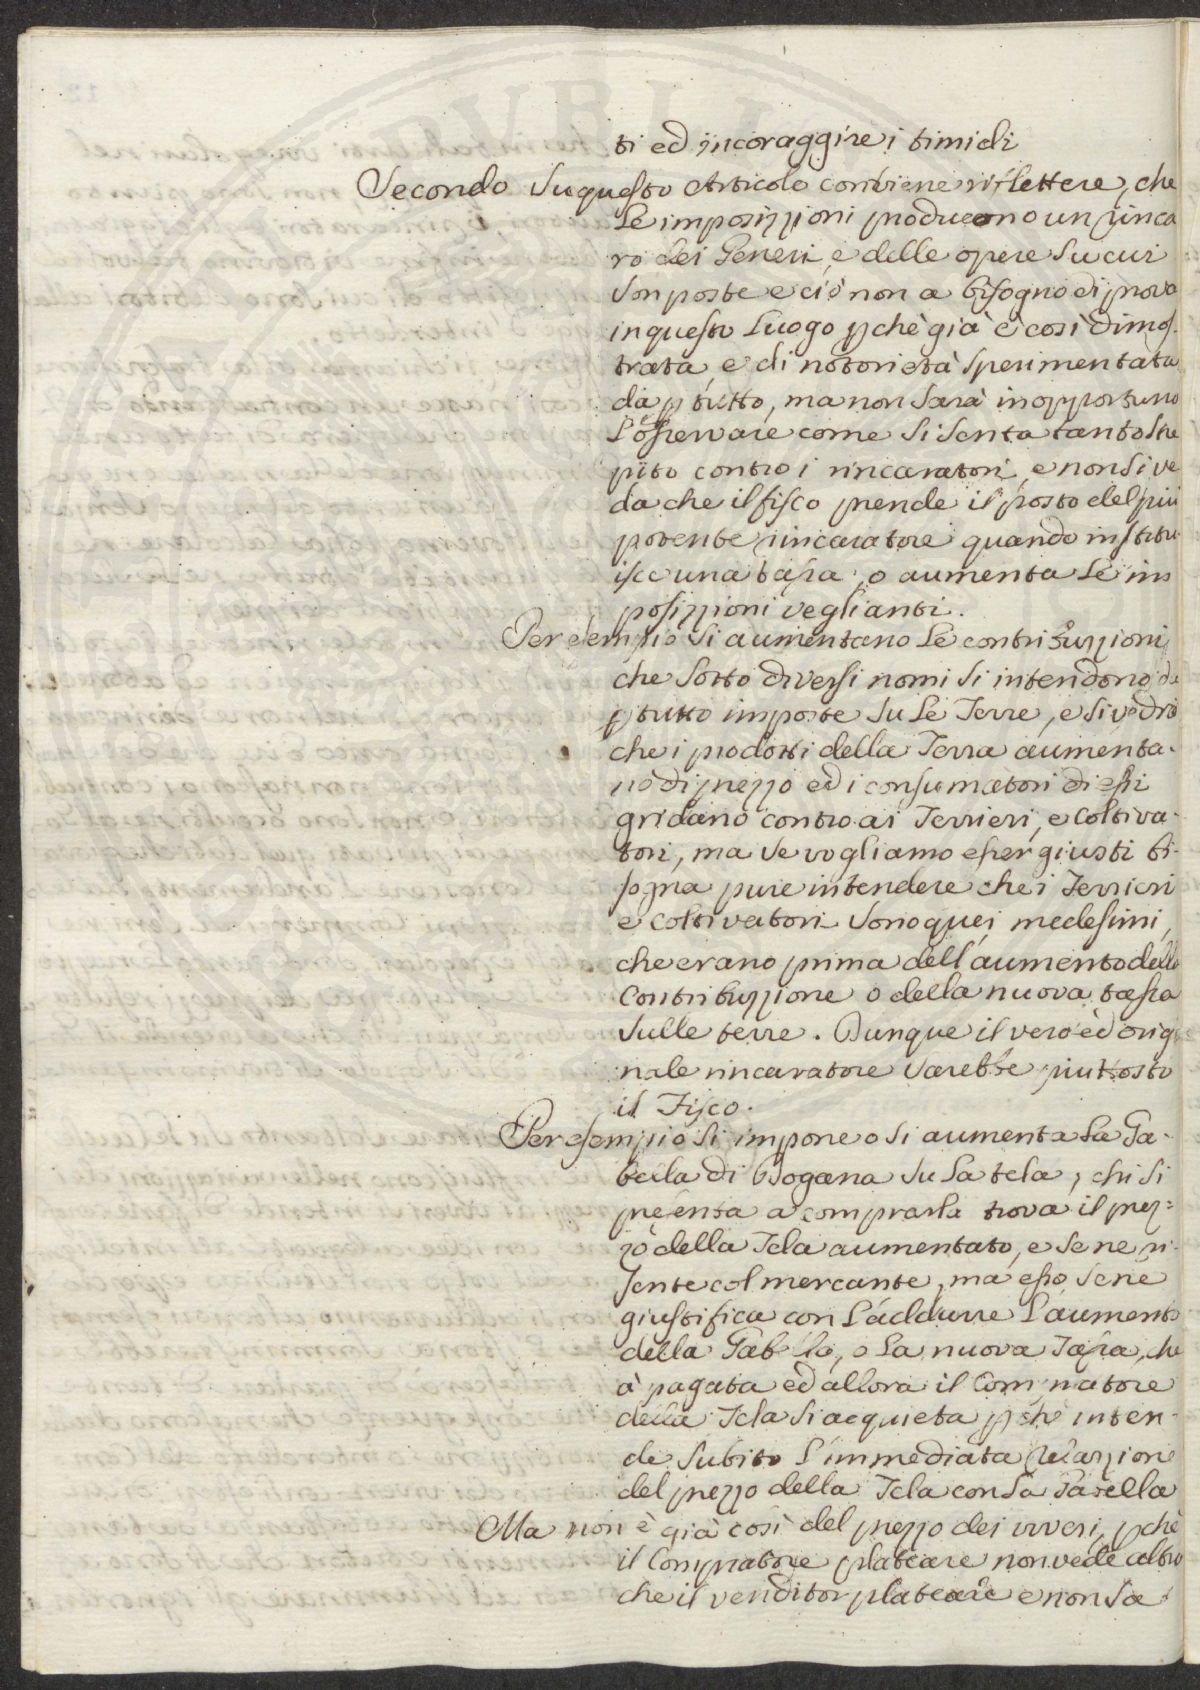 ti ed incoraggire i timidi
Secondo Su questo Articolo conviene riflettere, che
Le imposizzioni producono un rinca
ro dei Generi, e delle opere su cui
Son poste e ciò non a bisogno di prova
in questo Luogo pchè già è così dimos-
trata, e di notorietà sperimentata
da p tutto, ma non sarà inopportuno
L'osservare come si senta tanto stre
pito contro i rincaratori e non si ve
da che il fisco prende il posto del più
potente rincaratore quando institu
isce una tassa, o aumenta Le im
posizzioni veglianti.
Per esempio si aumentano Le contribuzzioni,
che sotto diversi nomi si intendono da
p tutto imposte su Le Terre, e si vedrà
che i prodotti della Terra aumenta-
no di prezzo ed i consumatori di essi
gridano contro ai Terrieri, e Coltiva-
tori, ma se vogliamo esser giusti bi-
sogna pure intendere che i Terrieri
e Coltivatori sono quei medesimi,
che erano prima dell'aumento della
Contribuzzione o della nuova tassa
sulle terre. Dunque il vero ed origi
nale rincaratore sarebbe piuttosto
il Fisco.
Per esempio si impone o si aumenta La Ga-
bella di Dogana su La tela, chi si
presenta a comprarla trova il prez=
zo della Tela aumentato, e se ne ri-
sente col mercante, ma esso se ne
giustifica con L'addurre L'aumento
della Gabella, o La nuova Tassa, che
à pagata ed allora il Compratore
della Tela si acquieta pchè inten-
de subito L'immediata relazzione
del prezzo della Tela con La Gabella
Ma non è già così del prezzo dei viveri, pchè
il Compratore plateare non vede altro
che il venditor plateare e non sa